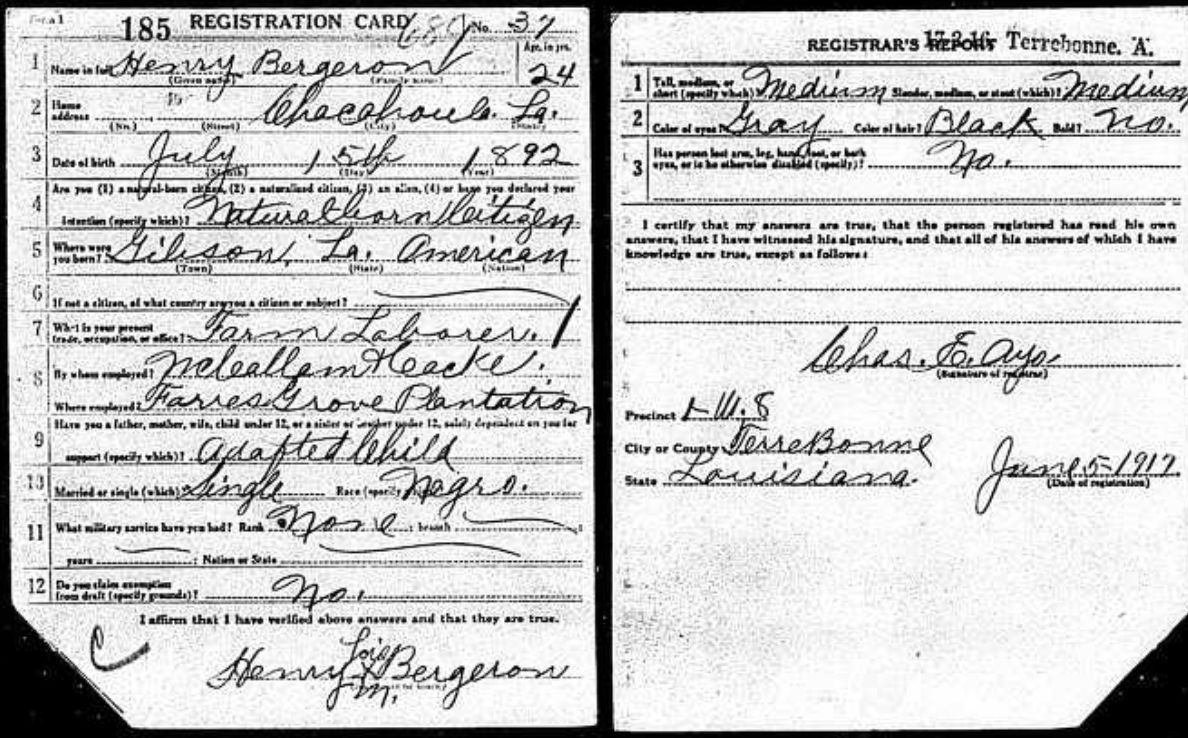 Form 1 185 REGISTRATION CARD No. 37
1 Name in full Henry Bergeron Age, in yrs. 24
(Given name) (Family name)
2 Home address Chacahoula La.
(No.) (Street) (City) (State)
3 Date of birth July 15th 1892
(Month) (Day) (Year)
4 Are you (1) a natural-born citizen, (2) a naturalized citizen, (3) an alien, (4) or have you declared your
intention (specify which)? Natural born Citizen
5 Where were you born? Gibson, La. American
(Town) (State) (Nation)
6 If not a citizen, of what country are you a citizen or subject?
7 What is your present trade, occupation, or office? Farm Laborer.
8 By whom employed?
Where employed? Farres Grove Plantation
9 Have you a father, mother, wife, child under 12, or a sister or brother under 12, solely dependent on you for
support (specify which)? Adapted Child
10 Married or single (which)? Single Race (specify which)? Negro.
11 What military service have you had? Rank None ; branch ;
years ; Nation or State
12 Do you claim exemption from draft (specify grounds)? No.
I affirm that I have verified above answers and that they are true.
Henry X Bergeron
REGISTRAR'S REPORT 17-2-16. Terrebonne. A.
1 Tall, medium, or short (specify which)? Medium Slender, medium, or stout (which)? Medium
2 Color of eyes? Gray Color of hair? Black Bald? No.
3 Has person lost arm, leg, hand, foot, or both eyes, or is he otherwise disabled (specify)? No.
I certify that my answers are true, that the person registered has read his own
answers, that I have witnessed his signature, and that all of his answers of which I have
knowledge are true, except as follows:
Chas. E. Ayo.
(Signature of registrar)
Precinct W. 8
City or County TerreBonne
State Louisiana. June 5-1917
(Date of registration)